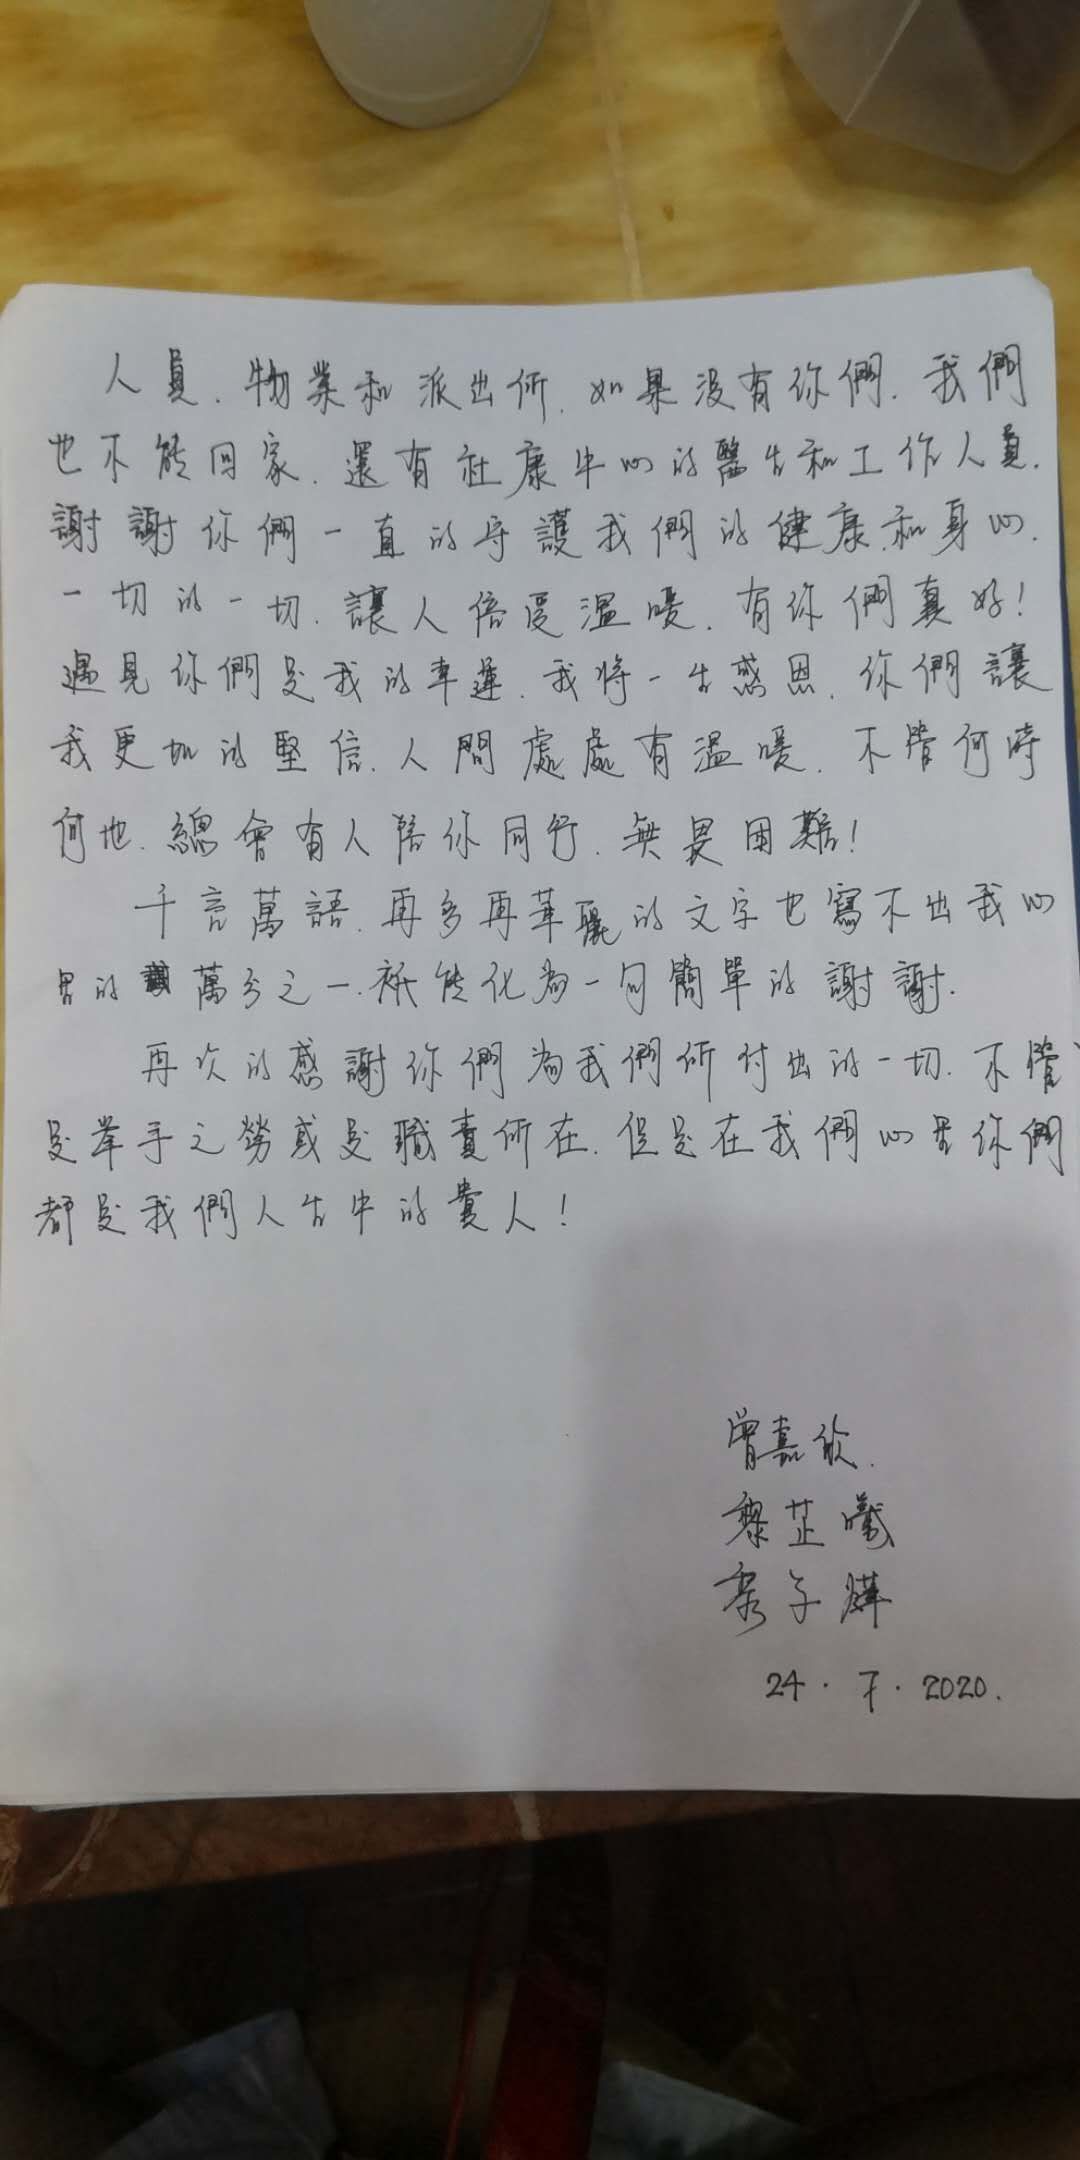 人員、物業和派出所，如果沒有你們，我們
也不能回家，還有社康中心的醫生和工作人員，
謝謝你們一直的守護我們的健康和身心，
一切的一切，讓人倍受溫暖，有你們真好！
遇見你們是我的幸運，我將一生感恩，你們讓
我更加的堅信，人間處處有溫暖，不管何時
何地，總會有人陪你同行，無畏困難！
千言萬語，再多再華麗的文字也寫不出我心
里的萬分之一，祇能化為一句簡單的謝謝．
再次的感謝你們為我們所付出的一切，不管
是举手之勞或是職責所在，但是在我們心里你們
都是我們人生中的貴人！
曾嘉欣．
黎芷曦
黎子
24．7．2020．